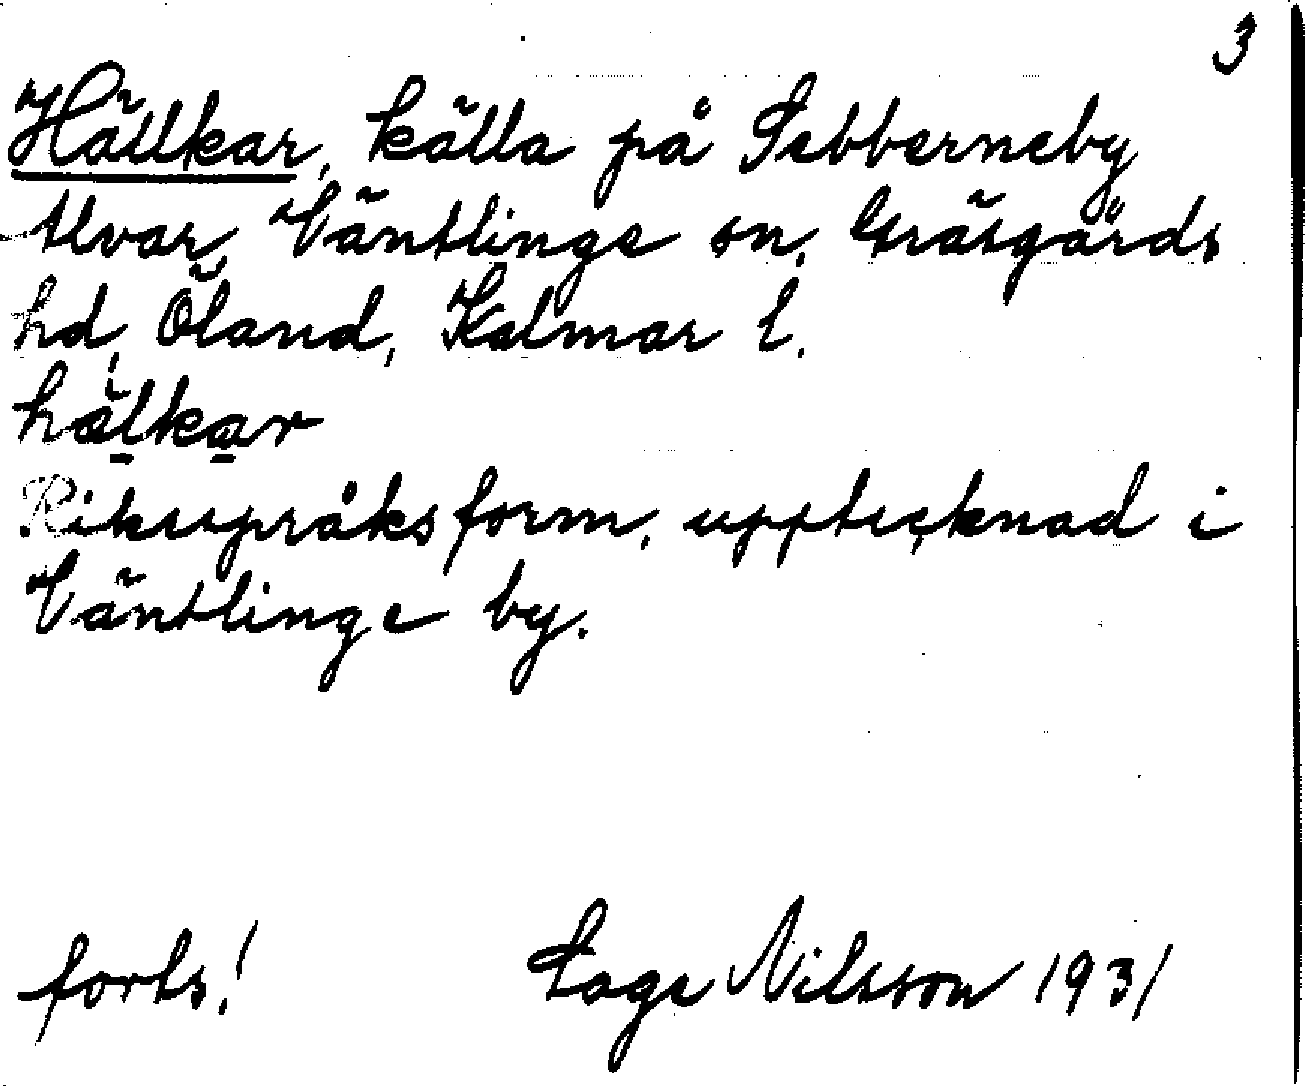 3
Hällkar, källa på Sebberneby
Alvar, Ventlinge sn, Gräsgårds
hd, Öland, Kalmar l.
hälkar
Riksspråksform, upptecknad i
Väntlinge by.
forts! Tage Nilsson 1931